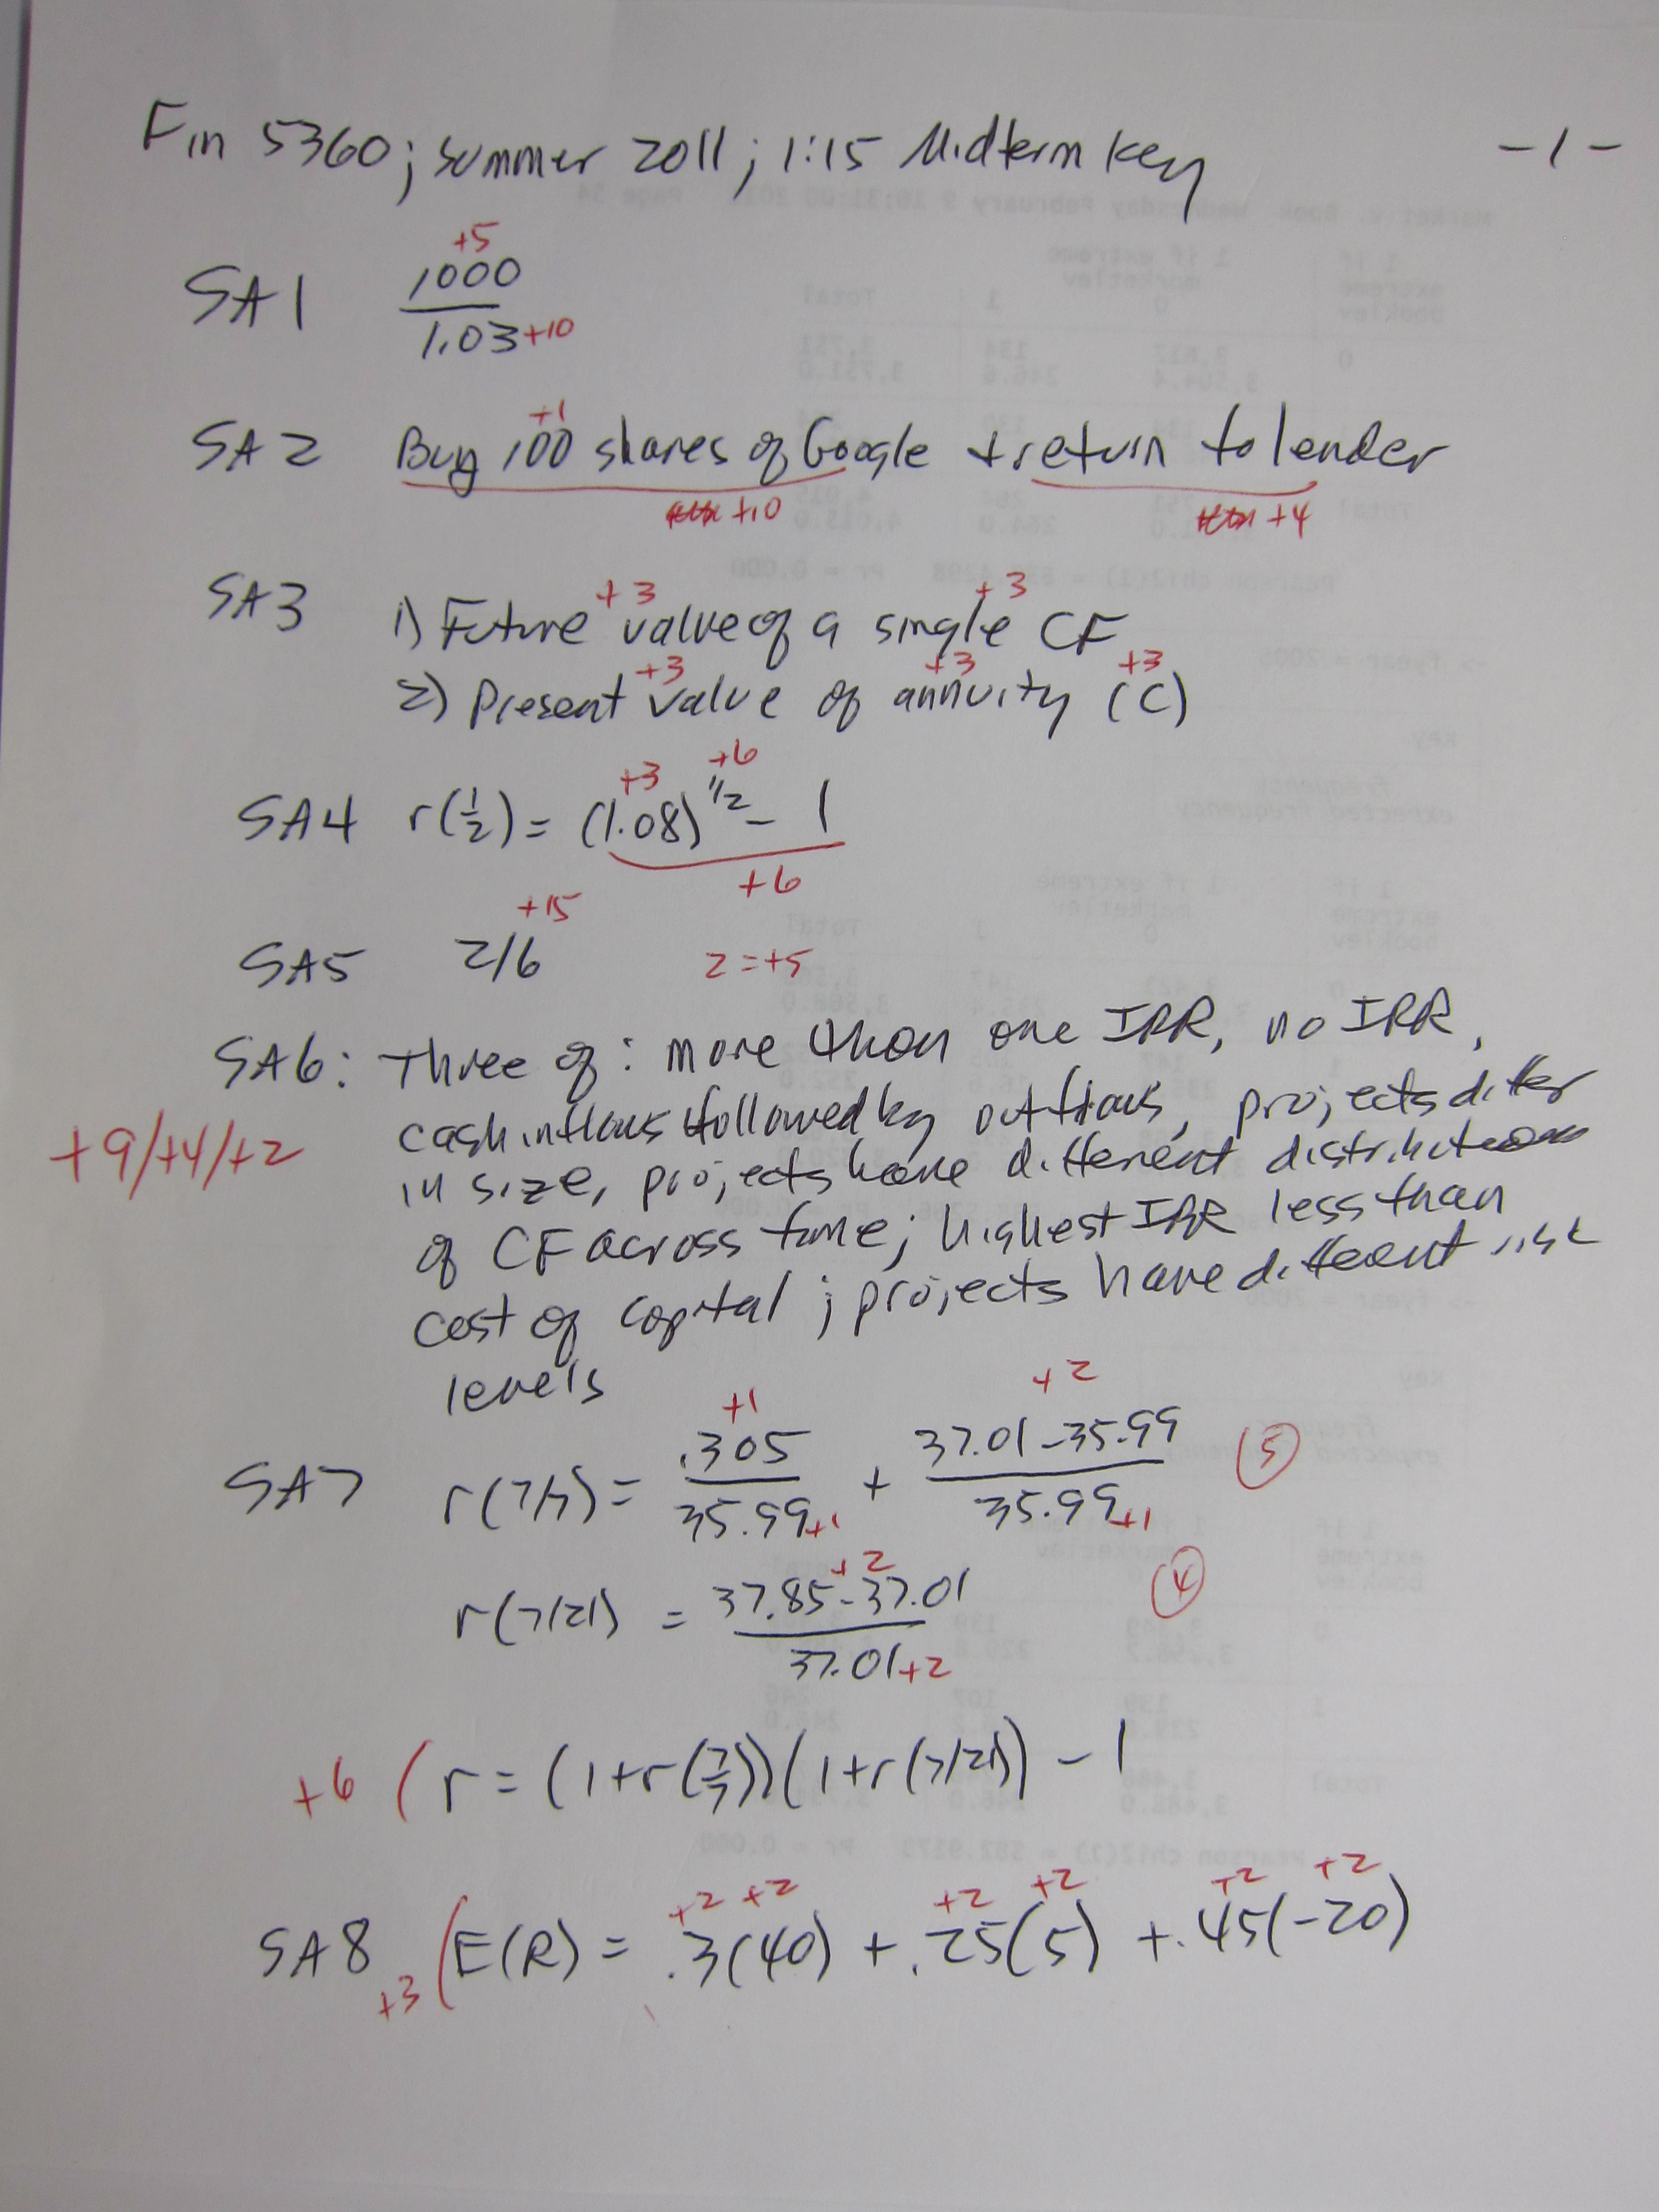 Fin 5360; Summer 2011; 1:15 Midterm Key -1-
+5
SA1 1000
1.03 +10
+1
SA2 Buy 100 shares of Google + return to lender
+10 +4
+3 +3
SA3 1) Future value of a single CF
+3 +3 +3
2) Present value of annuity (C)
+3 +6
SA4 r(1/2) = (1.08)^1/2 - 1
+6
+15
SA5 2/6 2=+5
SA6: Three of: more than one IRR, no IRR,
+9/+4/+2 cash inflows followed by outflows, projects differ
in size, projects have different distributions
of CF across time; highest IRR less than
cost of capital; projects have different risk
levels
+1 +2
.305 37.01-35.99 (5)
SA7 r(7/7) = +
35.99 +1 35.99 +1
+2
r(7/21) = 37.85-37.01 (4)
37.01 +2
+6 ( r = (1+r(7/7))(1+r(7/21)) - 1
+2 +2 +2 +2 +2 +2
SA8 +3 ( E(R) = .3(40) + .25(5) + .45(-20)